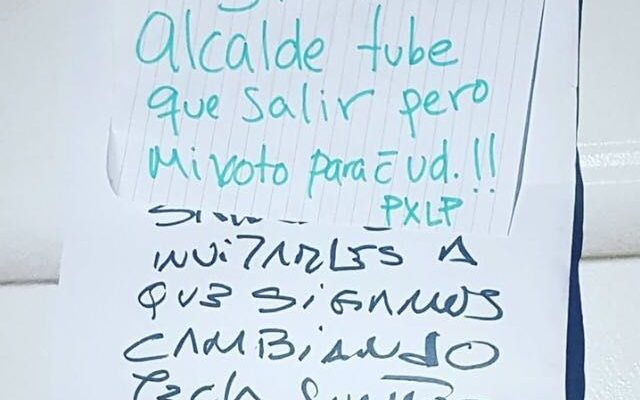 Alcalde tube
que salir pero
mi voto para ud.!!
PXLP
INVITARLES A
QUE SIGAMOS
CAMBIANDO